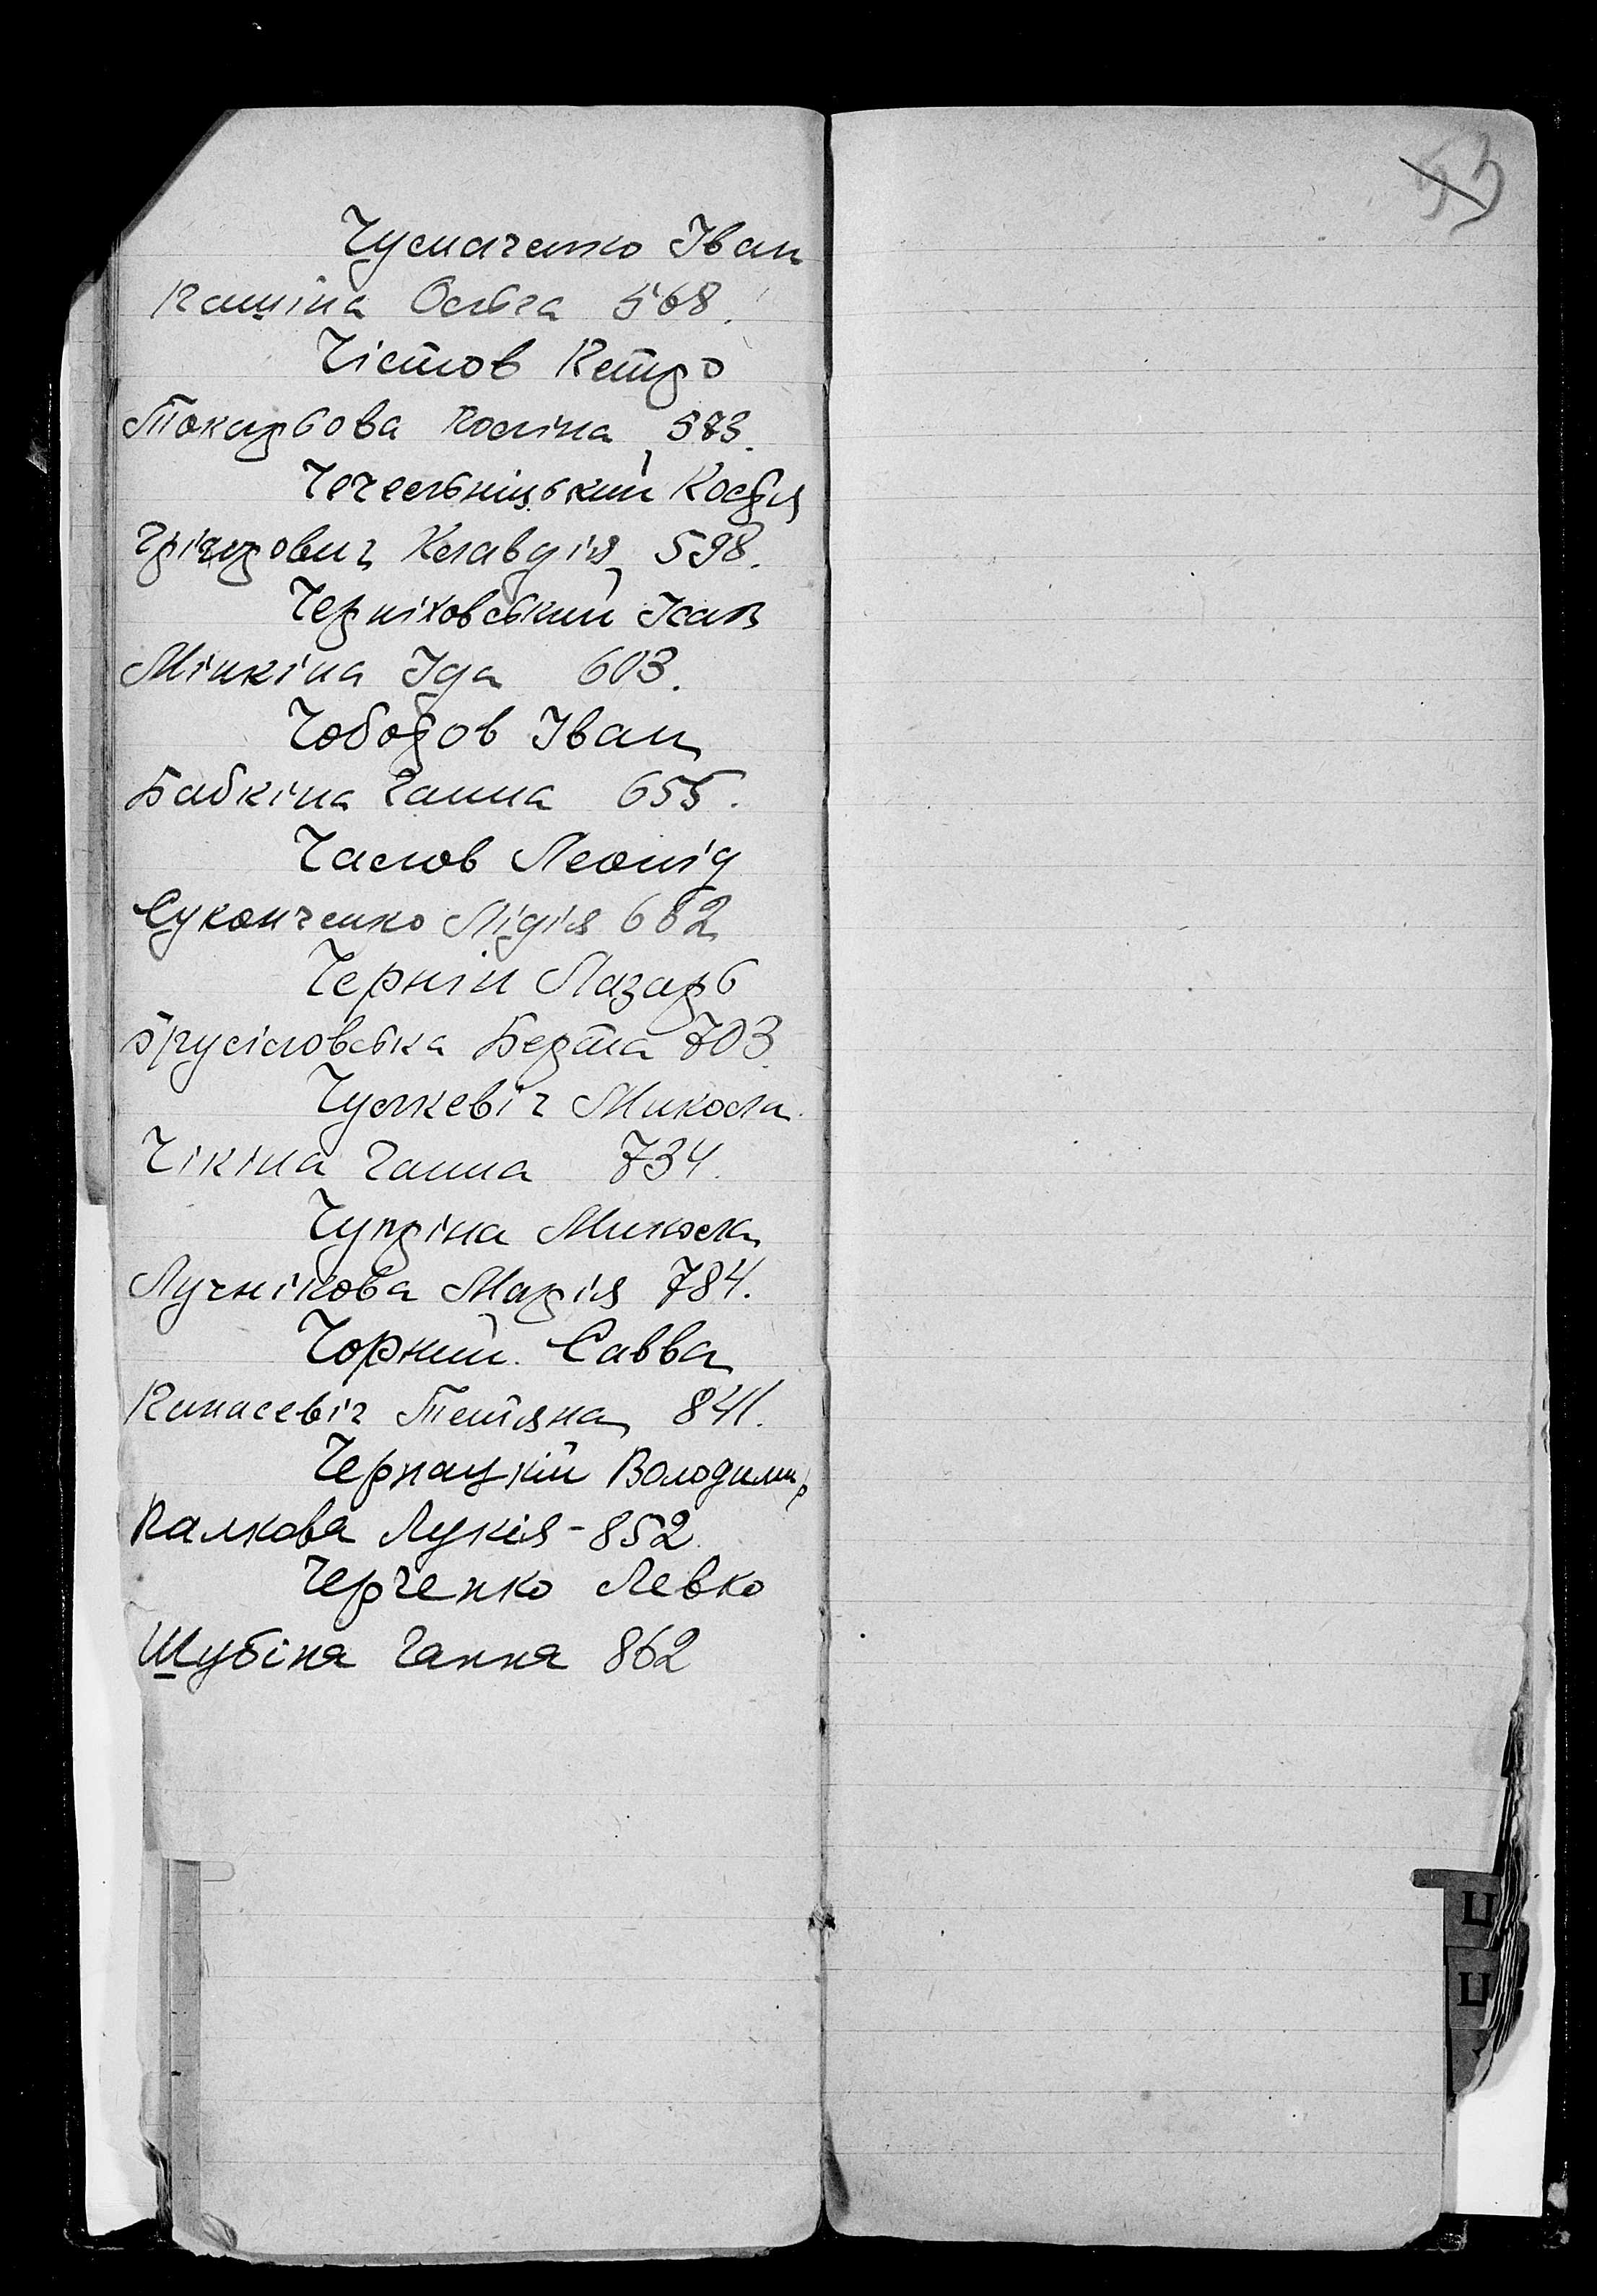 Чумаченко Іван
Кашіна Ольга 568.
Чістов Петро
Токарьова Поліна 573.
Чечельніцький Йосип
Грігорович Клавдія 598.
Черніховський Ісак
Мінкіна Іда 603.
Чоботов Іван
Бабкіна Ганна 655.
Часлов Леонід
Суконченко Лідія 682
Чернін Лазарь
Брусіловська Берта 703
Чулкевіч Микола
Чікіна Ганна 734.
Чупріна Микола
Лучнікова Марія 784.
Чорний Савва
Панасевіч Тетяна 841.
Чернацкій Володимир
Палкова Лукія - 852
Черченко Левко
Шубіна Ганна 862
53
Ц